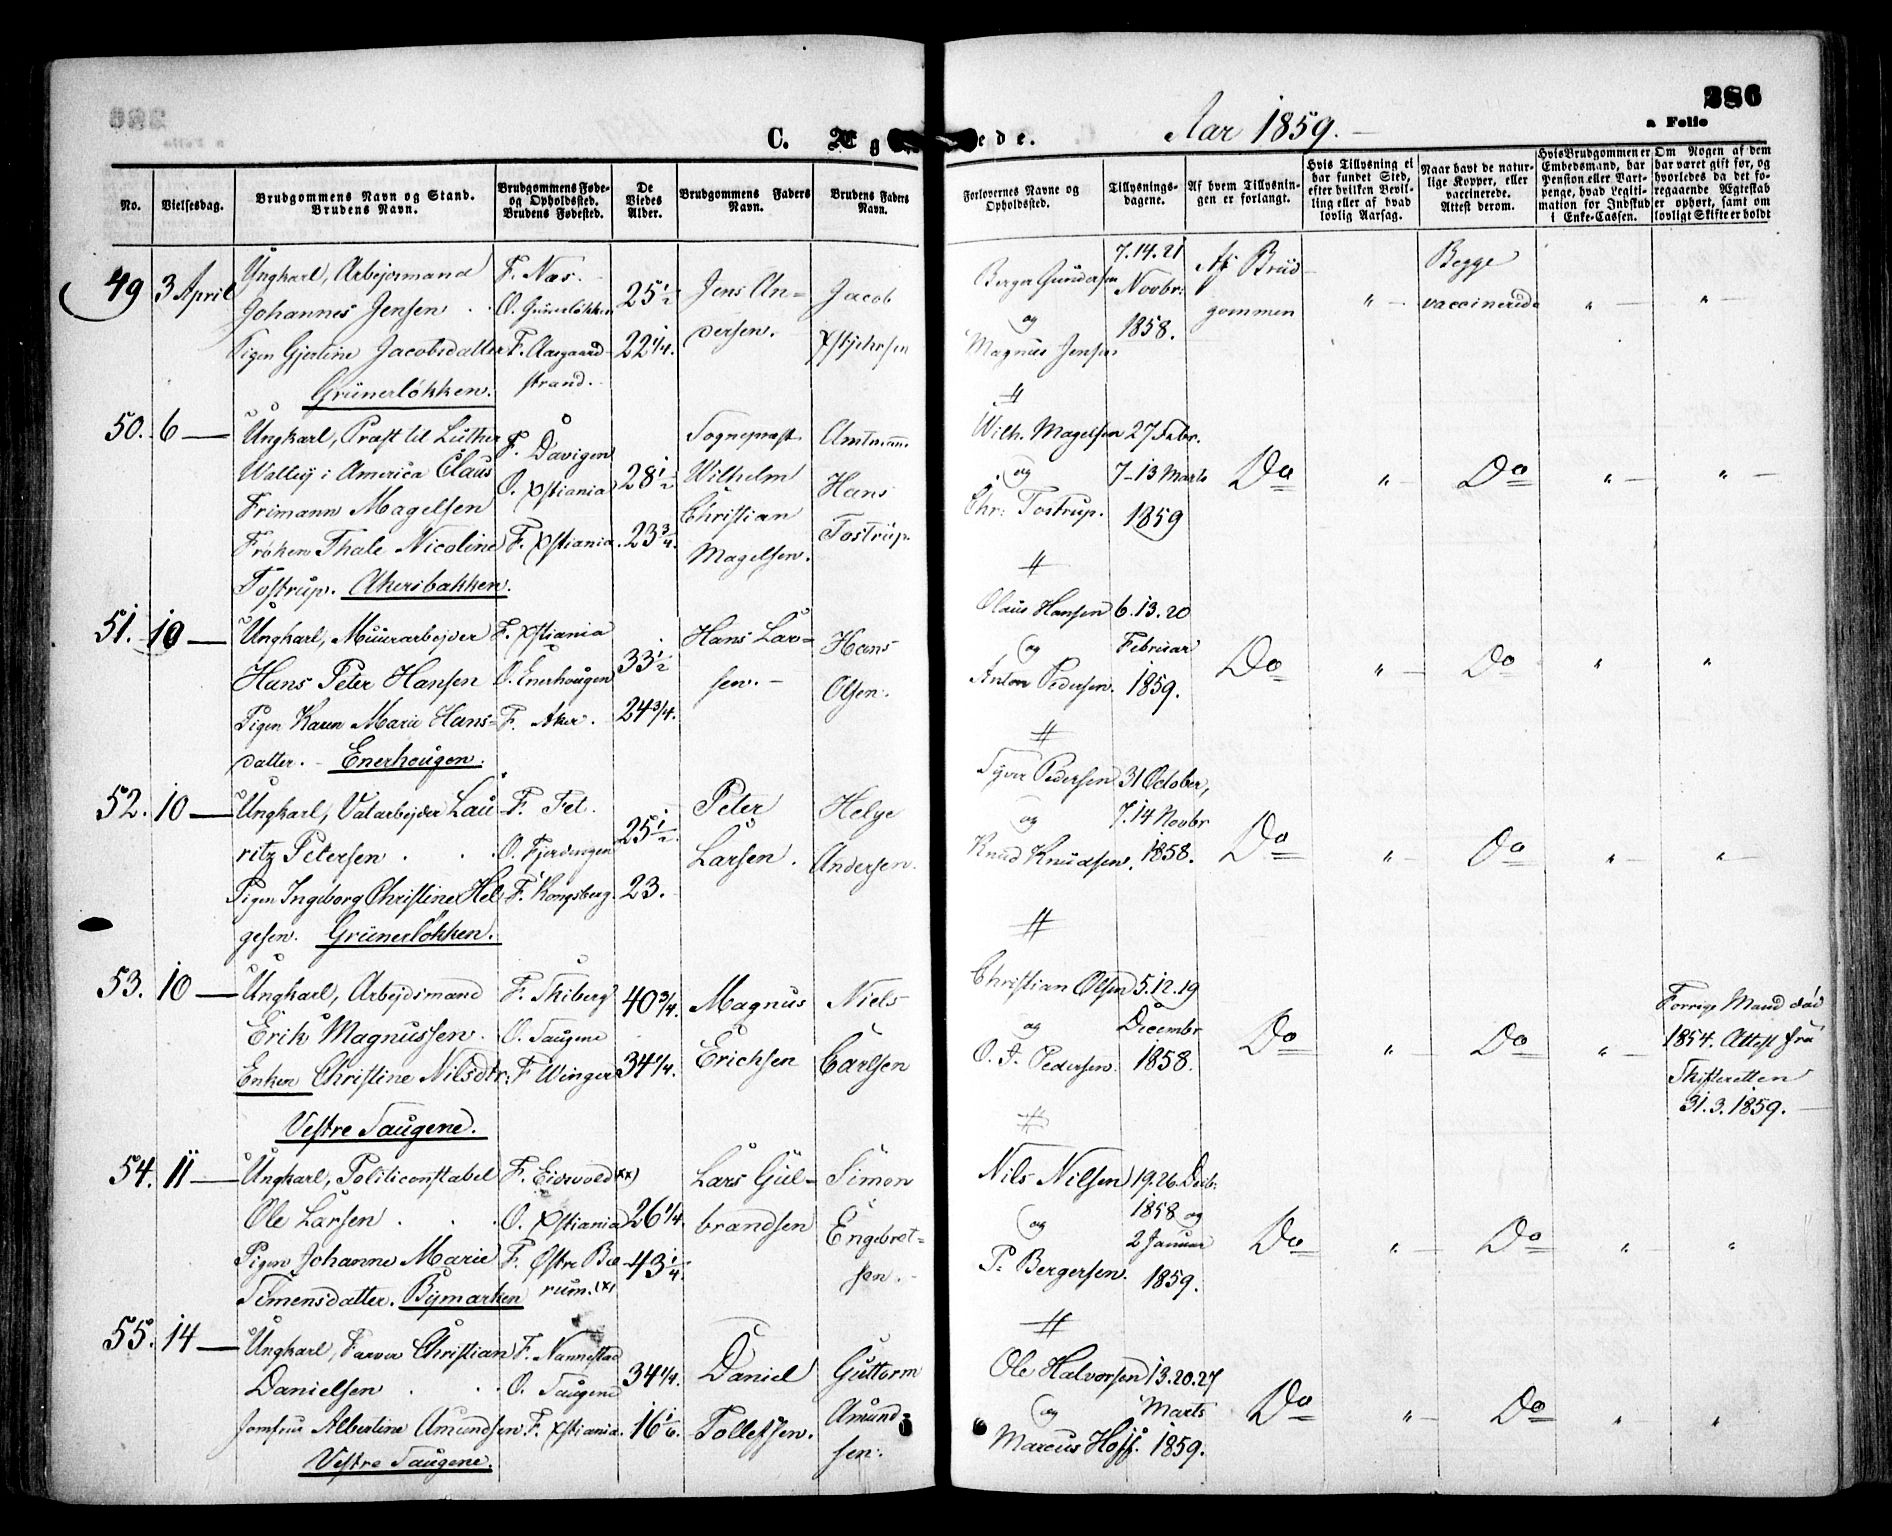 386
a Folio
C. Æg
ede.
Aar 1859.
No.
Vielsesdag.
Brudgommens Navn og Stand.
Brudens Navn.
Brudgommens Føde-
og Opholdssted.
Brudens Fødested.
De
Viedes
Alder.
Brudgommens Faders
Navn.
Brudens Faders
Navn.
Forlovernes Navne og
Opholdssted.
Tillysnings-
dagene.
Af hvem Tillysnin-
gen er forlangt.
Hvis Tillysning ei
har fundet Sted,
efter hvilken Bevil-
ling eller af hvad
lovlig Aarsag.
Naar havt de natur-
lige Kopper, eller
vaccinerede.
Attest derom.
Hvis Brudgommen er
Embedsmand, har
Pension eller Vart-
penge, hvad Legiti-
mation for Indskud
i Enke-Cassen.
Om Nogen af dem
har været gift før, og
hvorledes da det fo-
regaaende Ægteskab
er ophørt, samt om
lovligt Skifte er holdt
49
3 April
Ungkarl, Arbejdsmand
Johannes Jensen
Pigen Gjerline Jacobsdatter
Grünerløkken.
F. Næs.
O. Grünerløkken
F. Aasgaard-
strand.
25 1/2
22 1/4.
Jens An-
dersen.
Jacob
Berger Gundersen
og
Magnus Jensen
7. 14. 21
Novbr:
1858.
Af Brud
gommen
" -
Begge
vaccinerede
" -
" -
50.
6 —
Ungkarl, Præst til Luther
Walley i America Claus
Frimann Magelsen
Frøken Thale Nicoline
Tostrup. Akersbakken.
F. Davigen
O. Xstiania
F. Xstiania.
28 1/2
23 3/4.
Sognepræst
Wilhelm
Christian
Magelsen.
Amtmann
Hans
Tostrup.
Wilh. Magelsen
og
Chr: Tostrup.
27 Febr.
7-13 Marts
1859
Do
" -
Do
" -
" -
51.
10 —
Ungkarl, Muurarbejder
Hans Peter Hansen
Pigen Karen Marie Hans-
datter. - Enerhougen.
F. Xstiania
O. Enerhougen
F. Aker.
33 1/2
24 3/4.
Hans Lar-
sen. -
Hans
Olsen.
Olaus Hansen
og
Anton Pedersen.
6. 13. 20
Februar
1859.
Do
" -
Do
"
"
52.
10 —
Ungkarl, Valarbejder Lau
ritz Petersen
Pigen Ingeborg Christine Hel
gesen. Grünerløkken.
F. Fet.
O. Fjerdingen
F. Kongsberg.
25 1/2
23.
Peter
Larsen.
Helge
Andersen.
Syver Pedersen
og
Knud Knudsen.
31 October,
7. 14 Novbr
1858.
Do
" -
Do
" -
" -
53.
10 —
Ungkarl, Arbejdsmand
Erik Magnussen.
Enken Christine Nilsdtr:
Vestre Saugene.
F. Skiberg
O. Saugene
F Winger
40 3/4.
34 1/4.
Magnus
Erichsen
Niels
Carlsen
Christian Olsen
og
O. A. Pedersen.
5. 12. 19
Decembr
1858.
Do
"
Do
" -
Forrige Mand død
1854. Attest fra
Skifteretten
31. 3. 1859. -
54.
11 —
Ungkarl, Politiconstabel
Ole Larsen
Pigen Johanne Marie
Simensdatter. Bymarken
F. Eidsvold (xx)
O. Xstiania
F. Østre Bæ
rum. (x)
26 1/4.
43 1/4.
Lars Gul-
brandsen
Simon
Engebret-
sen. -
Nils Nilsen
og
P. Bergersen.
19. 26. Decbr:
1858 og
2 Januar
1859.
Do
" -
Do
" -
"
55.
14 —
Ungkarl, Farver Christian
Danielsen
Jomfru Albertine Amundsen
Vestre Saugene.
F. Nannestad
O. Saugene
F. Xstiania.
34 1/4.
16 1/6.
Daniel
Tollefsen.
Guttorm
Amund-
sen.
Ole Halvorsen
og
Marcus Hoff.
13. 20. 27
Marts
1859.
Do
" -
Do
"
"